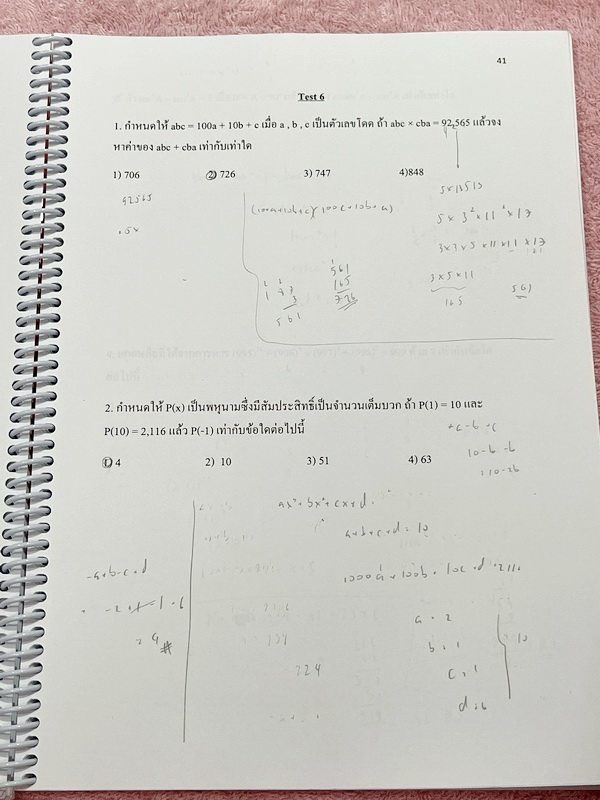 41
Test 6
1. กำหนดให้ abc = 100a + 10b + c เมื่อ a , b , c เป็นตัวเลขโดด ถ้า abc × cba = 92,565 แล้วจง
หาค่าของ abc + cba เท่ากับเท่าใด
1) 706 2) 726 3) 747 4)848
92565
5 × 3² × 11² × 17
3×3×5×11×11×17
3×5×11
165
561
561
165
726
561
2. กำหนดให้ P(x) เป็นพหุนามซึ่งมีสัมประสิทธิ์เป็นจำนวนเต็มบวก ถ้า P(1) = 10 และ
P(10) = 2,116 แล้ว P(-1) เท่ากับข้อใดต่อไปนี้
1) 4 2) 10 3) 51 4) 63
10-b-b
=10-2b
a+b+c+d = 10
-a+b-c+d
= 4 #
a = 2
b = 1
c = 1
d = 6
10
224